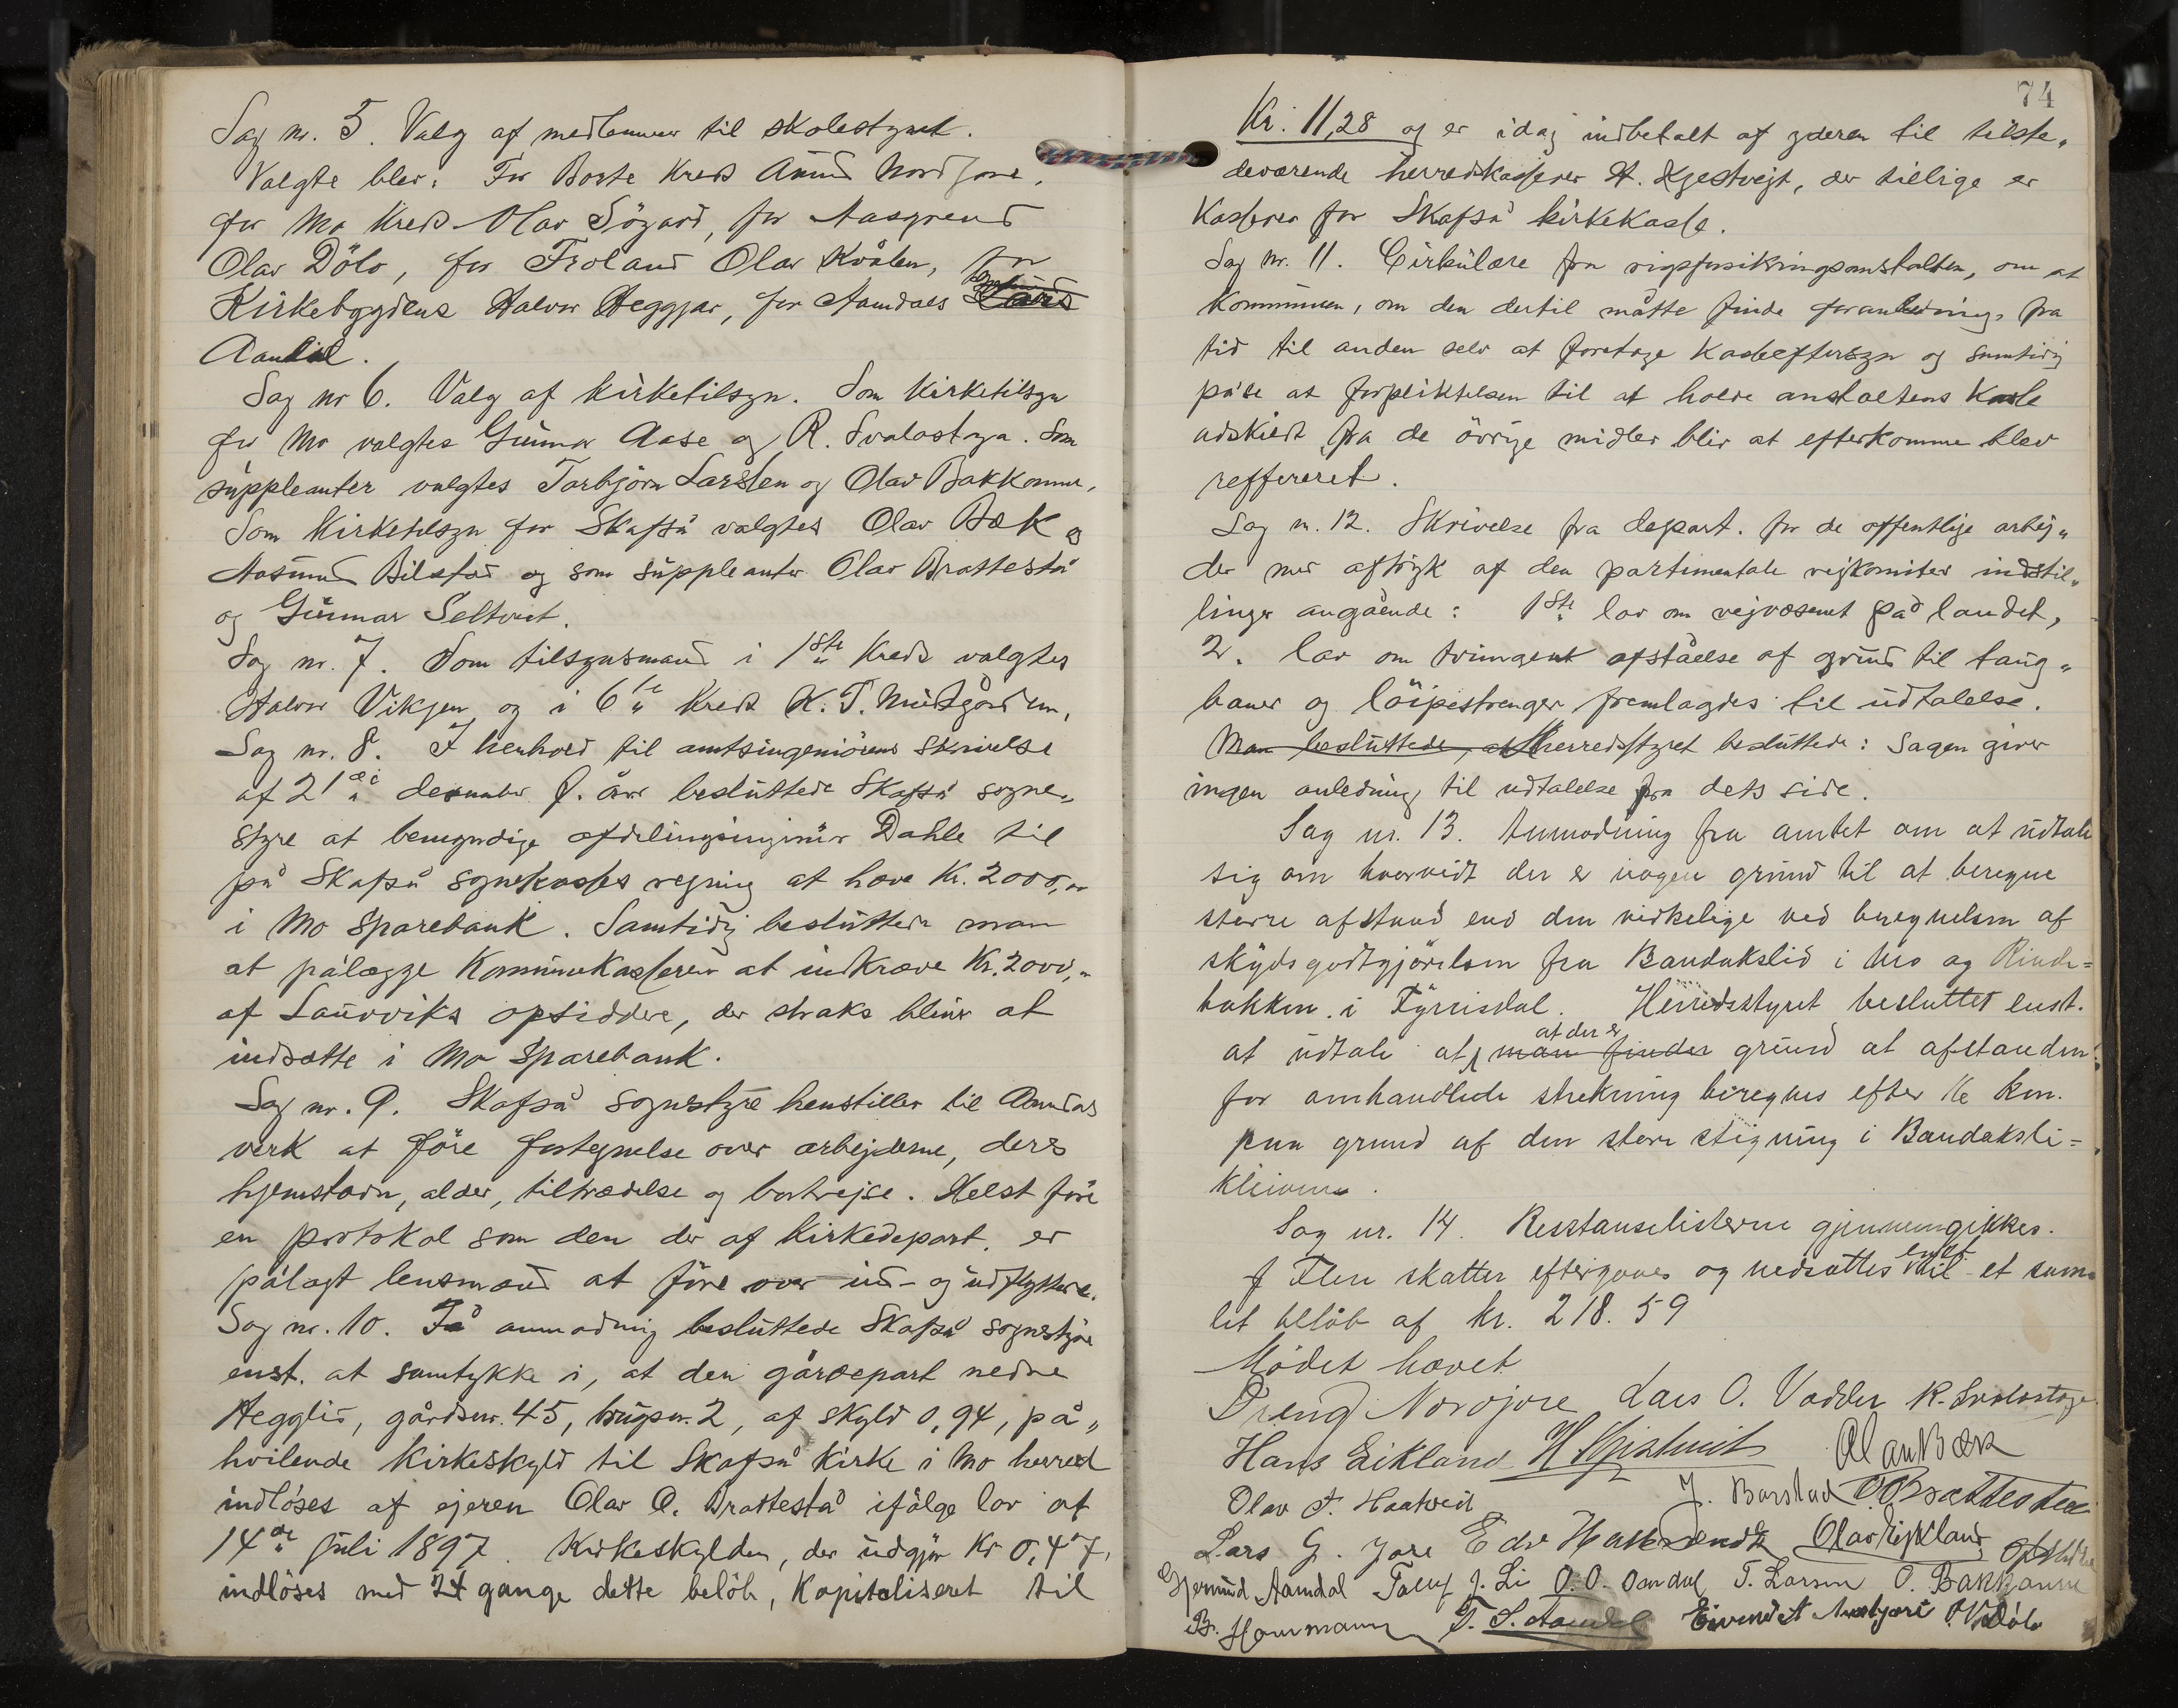 Sag nr. 5. Valg af medlemmer til skolestyret.
Valgte blev: For Borte Kreds Aanund Nordjore,
for Mo Kreds Olav Sögard, for Aasgrend
Olav Dölo, for Froland Olav Kvålen, for
Kirkebygdens Halvor Heggjar, for Aamdals
Aamdal.
Sag nr 6. Valg af kirketilsyn. Som Kirketilsyn
for Mo valgtes Gunnar Aase og R. Svalastoga. Som
suppleanter valgtes Torbjörn Larsen og Olav Bakkanne.
Som Kirketilsyn for Skafså valgtes Olav Bæk og
Aasmund Bilstad og som suppleanter Olav Brattestå
og Gunnar Seltveit.
Sag nr. 7. Som tilsynsmand i 1ste Kreds valgtes
Halvor Vikjen og i 6te Kreds K. T. Midtgården.
Sag nr. 8. I henhold til amtsingeniörens skrivelse
af 21de desember f. år besluttede Skafså sogne„
styre at bemyndige afdelingsingeniör Dahle til
på Skafså sognekasses regning at hæve Kr. 2000,„
i Mo Sparebank. Samtidig besluttede man
at pålægge Kommunekassereren at indkræve Kr. 2000,„
af Laurviks opsiddere, der straks bliver at
indsætte i Mo Sparebank.
Sag nr. 9. Skafså sognestyre henstiller til Aamdals
verk at före fortegnelse over arbejderne, deres
hjemstavn, alder, tiltrædelse og bortrejse. Helst före
en protokol som den der af Kirkedepart. er
pålagt lensmand at före over ind- og udflyttere.
Sag nr. 10. På anmodning besluttede Skafså sognestyre
enst. at samtykke i, at den gårdepart nedre
Hegglid, gårdsnr. 45, brugsnr. 2, af skyld 0,94, på„
hvilende Kirkeskyld til Skafså Kirke i Mo herred
indlöses af ejeren Olav O. Brattestå ifölge lov af
14de juli 1897. Kirkeskylden, der udgjör Kr 0,47,
indlöses med 24 gange dette belöb, Kapitaliseret til
74
Kr. 11,28 og er idag indbetalt af yderen til tilste„
deværende herredskasserer H. Kjestveit, der tillige er
Kasserer for Skafså kirkekasse.
Sag nr. 11. Cirkulære fra rigsforsikringsanstalten, om at
Kommunen, om den dertil måtte finde foranledning, fra
tid til anden selv at foretage Kasseeftersyn og samtidig
påse at forpliktelsen til at holde anstaltens Kasse
adskildt fra de övrige midler blir at efterkomme blev
reffereret.
Sag nr. 12. Skrivelse fra depart. for de offentlige arbej„
der med aftryk af den partimentale vejkomites indstil„
linger angående: 1ste lov om vejvæsenet på landet,
2. lov om tvungent afståelse af grund til taug„
baner og löipestrenger fremlagdes til udtalelse.
Man besluttede, at herredsstyret besluttede: Sagen giver
ingen anledning til udtalelse fra dets side.
Sag nr. 13. Anmodning fra amtet om at udtale
sig om hvorvidt der er nogen grund til at beregne
større afstand end den virkelige ved beregnelsen af
skydsgodtgjörelsen fra Bandakslid i Mo og Rinde=
bakken i Fyrrisdal. Herredsstyret besluttet enst.
at der er
at udtale at man finder grund at afstanden
for omhandlede strekning beregnes efter 16 km.
paa grund af den store stigning i Bandaksli=
kleivene.
Sag nr. 14. Resstanselisterne gjennemgikkes.
Flere skatter eftergaves og nedsattes til et sam„
let belöb af kr. 218.59
Mödet hævet
Dreng Nordjore Lars O. Vadder R. Svalastoga
Hans Eikland H Kjistveit Olav Bæk
Olav A. Haatveit J. Barstad O Brattestaa
Lars G. Jore Edv Halvorsen Olav Eikland
Gjermund Aamdal J. Li O. O. Aamdal T. Larsen O. Bakkanne
B. Hornmann T. S. Aamdal Eivind A